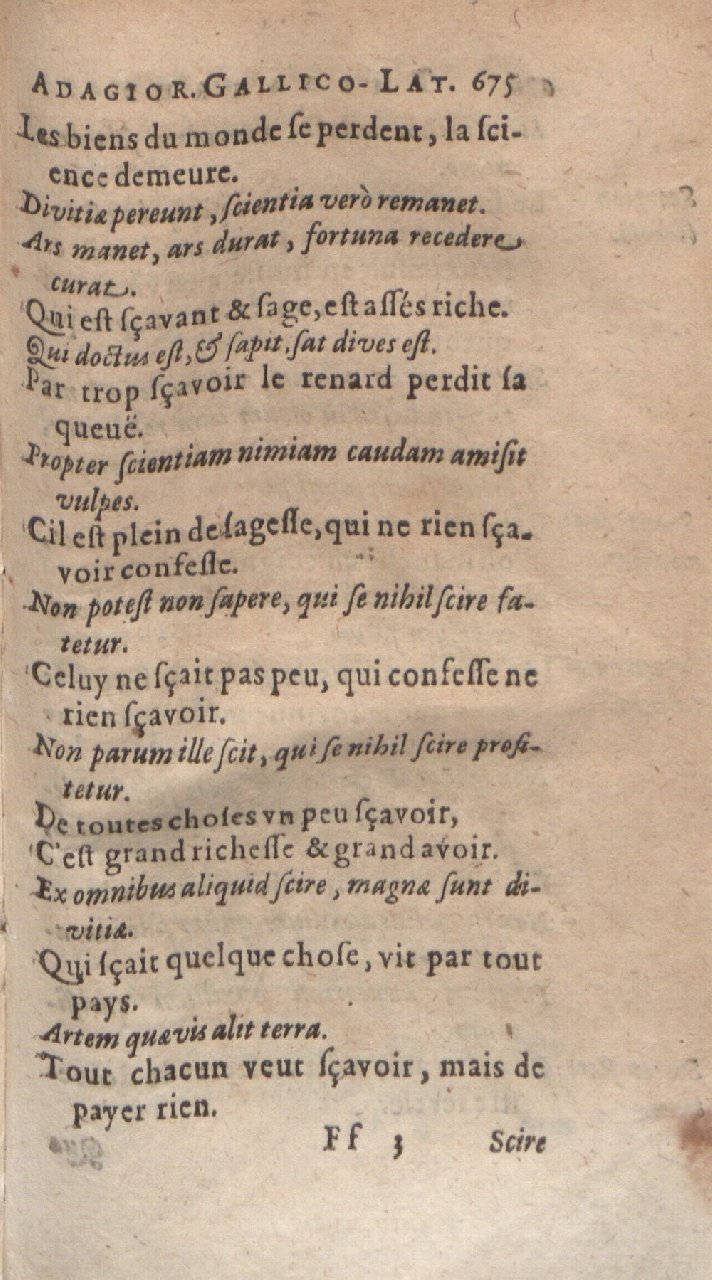 ADAGIOR. GALLICO-LAT. 675
Les biens du monde ſe perdent, la ſci-
ence demeure.
Divitiæ pereunt, ſcientia verò remanet.
Ars manet, ars durat, fortuna recedere
curat.
Qui eſt ſçavant & ſage, eſt aſſés riche.
Qui doctus eſt, & ſapit. ſat dives eſt.
Par trop ſçavoir le renard perdit ſa
queuë.
Propter ſcientiam nimiam caudam amiſit
vulpes.
Cil eſt plein de ſageſſe, qui ne rien ſça-
voir confeſſe.
Non poteſt non ſapere, qui ſe nihil ſcire fa-
tetur.
Celuy ne ſçait pas peu, qui confeſſe ne
rien ſçavoir.
Non parum ille ſcit, qui ſe nihil ſcire profi-
tetur.
De toutes choſes vn peu ſçavoir,
C'eſt grand richeſſe & grand avoir.
Ex omnibus aliquid ſcire, magnæ ſunt di-
vitiæ.
Qui ſçait quelque choſe, vit par tout
pays.
Artem quævis alit terra.
Tout chacun veut ſçavoir, mais de
payer rien.
Ff 3 Scire